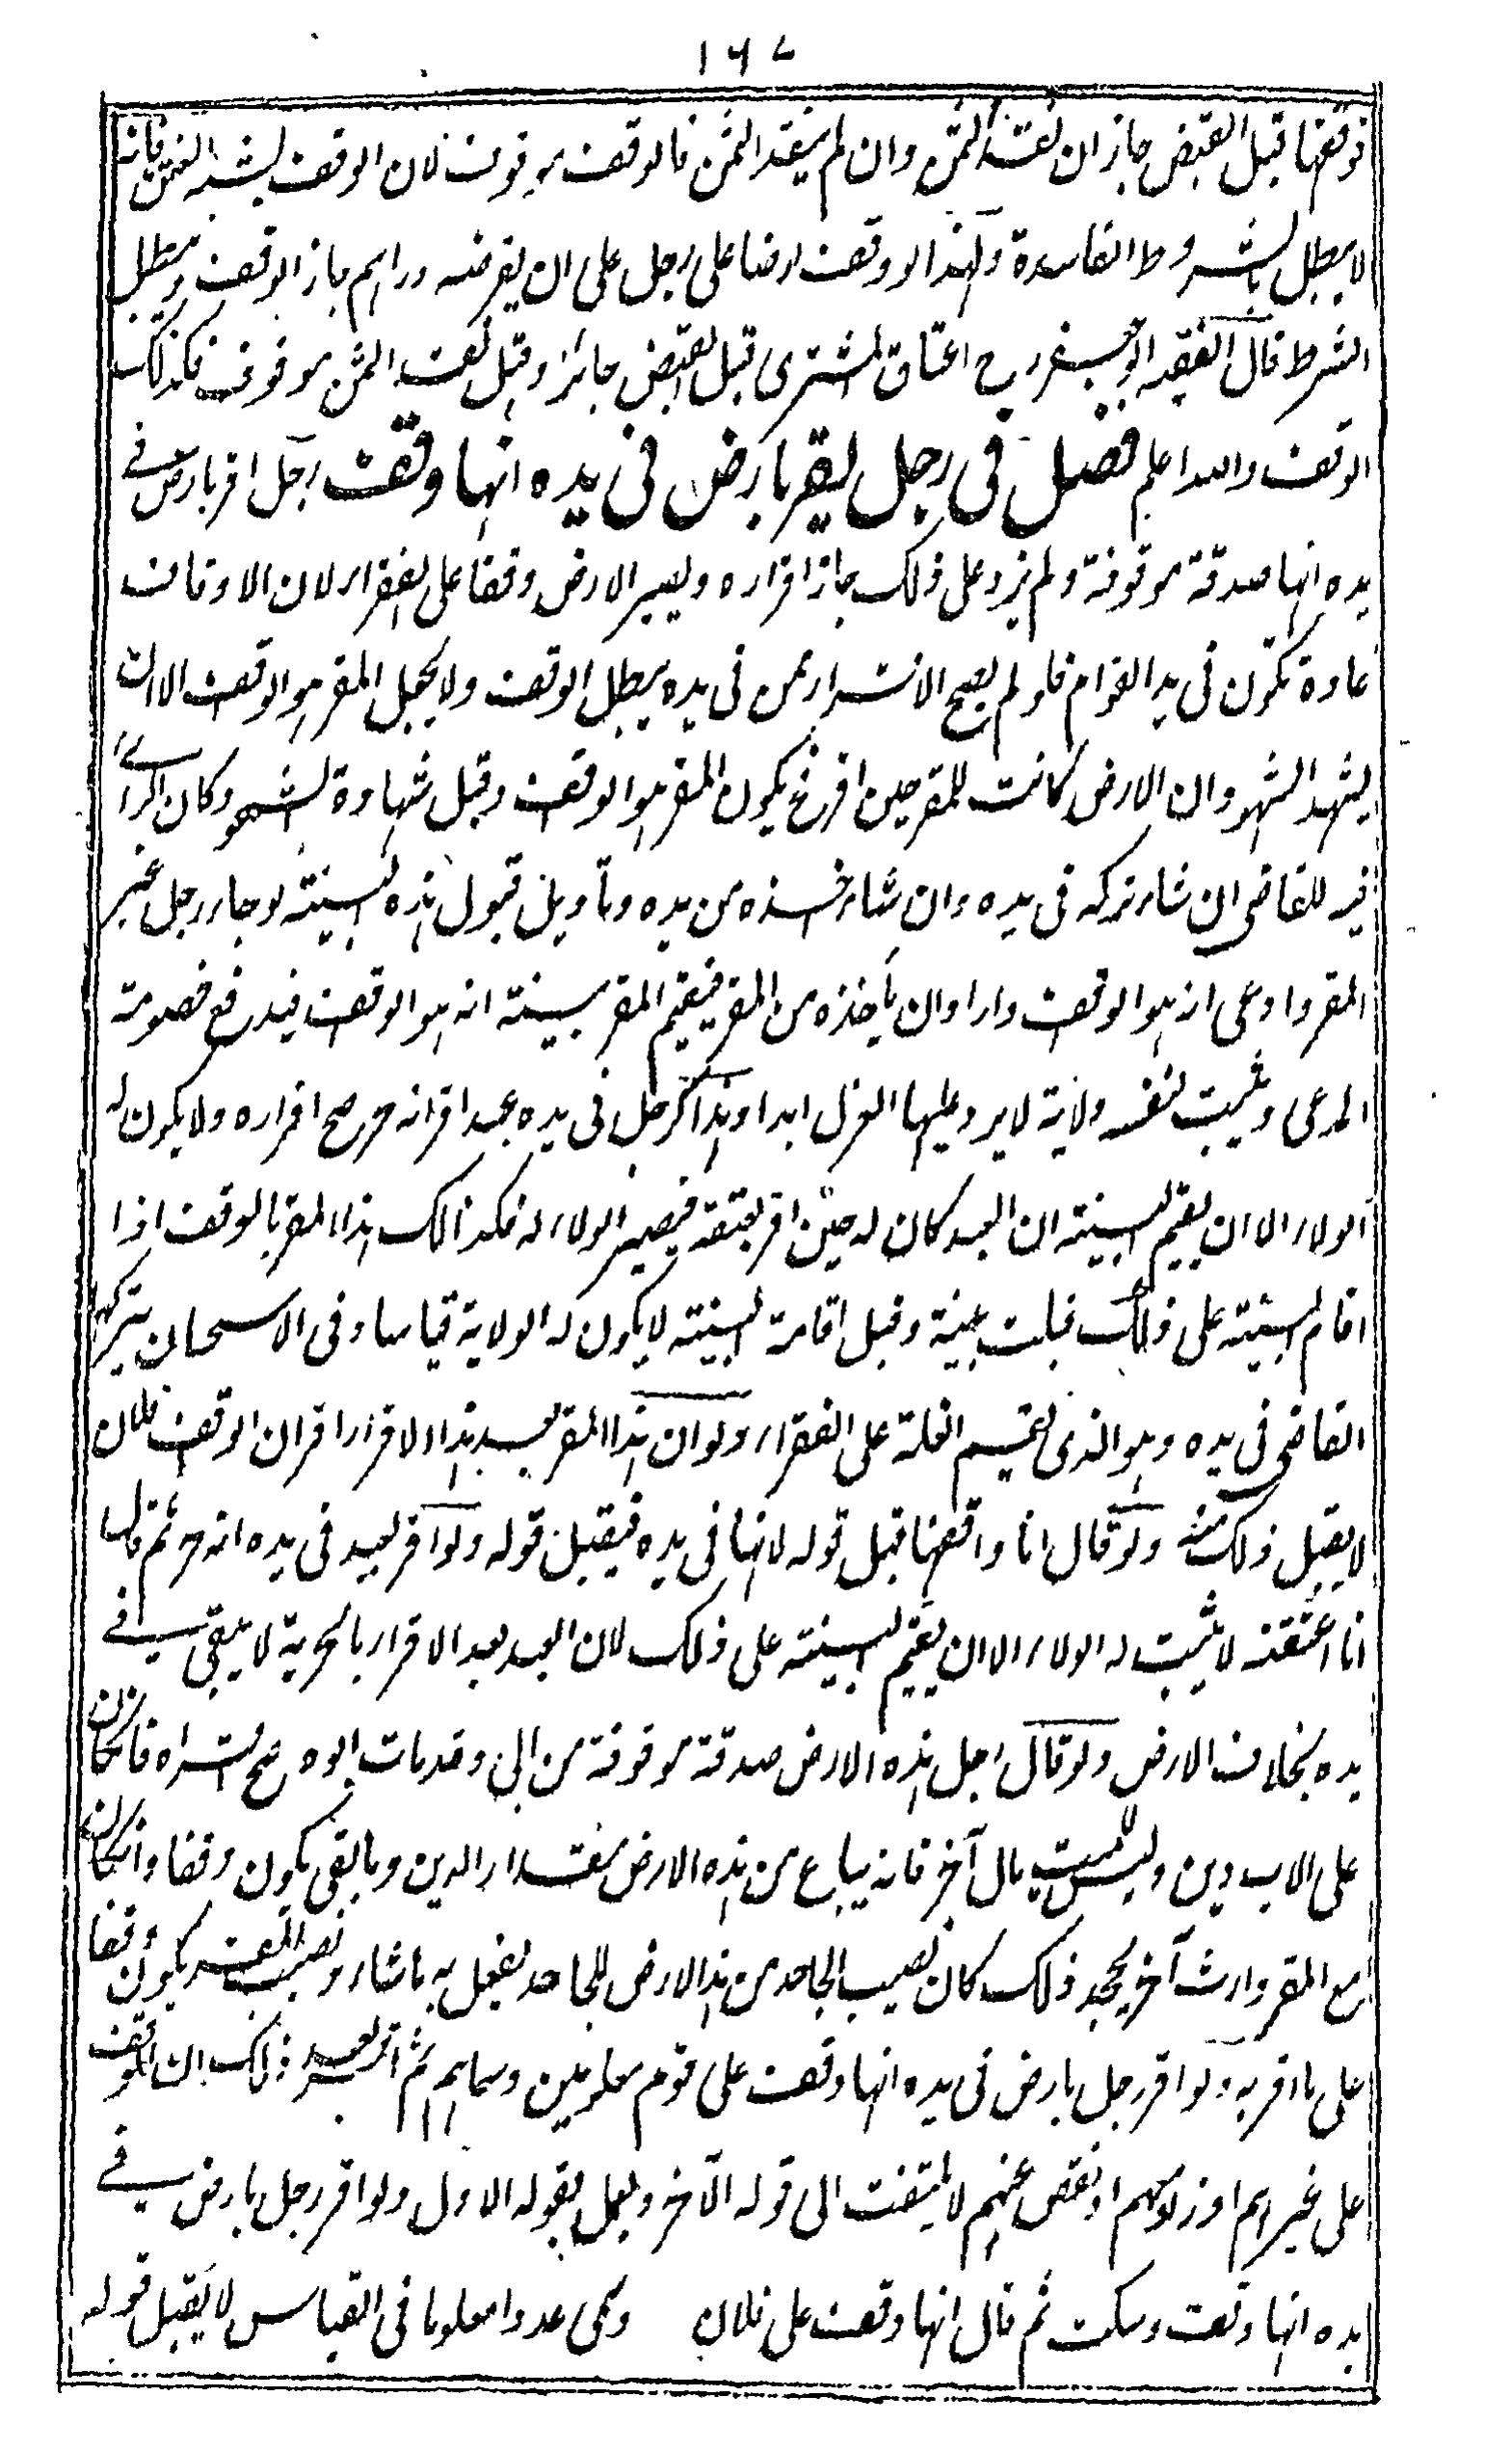 ١٦٧
فوقفها قبل القبض جاز ان نقد الثمن وان لم ينقد الثمن فالوقف موقوف لان الوقف يشبه العتق فانه
لا يبطل بالشروط الفاسدة ولهذا لو وقف ارضا على رجل على ان يقرضه دراهم جاز الوقف ويبطل
الشرط قال الفقيه ابو جعفر رح اعتاق المشترى قبل القبض جائز وقبل نقد الثمن موقوف فكذلك
الوقف والله اعلم فصل فى رجل يقر بارض فى يده انها وقف رجل اقر بارض فے
يده انها صدقة موقوفة ولم يزد على ذلك جاز اقراره ويصير الارض وقفا على الفقراء لان الاوقاف
عادة تكون فى يد القوام فلو لم يصح الاقرار ممن فى يده يبطل الوقف ولا يجعل المقر هو الواقف الا ان
يشهد الشهود ان الارض كانت للمقر حين اقر فح يكون المقر هو الواقف وقبل شهادة الشهود كان الراے
فيه للقاضى ان شاء تركه فى يده وان شاء اخذه من يده وتأويل قبول هذه البينة لو جاء رجل غير
المقر وادعى انه هو الواقف واراد ان يأخذه من المقر فيقيم المقر بينة انه هو الواقف فيدفع خصومة
المدعى ويثبت لنفسه ولاية لا يرد عليها العزل ابدا وهذا كرجل فى يده عبد اقر انه حر صح اقراره ولا يكون له
الولاء الا ان يقيم البينة ان العبد كان له حين اقر بعتقه فيصير الولاء له فكذلك هذا المقر بالوقف اذا
اقام البينة على ذلك قبلت بينته وقبل اقامة البينة لا يكون له الولاية قياسا وفى الاستحسان يتركها
القاضى فى يده وهو الذى يقسم الغلة على الفقراء ولو ان هذا المقر بعد هذا الاقرار اقر ان الواقف فلان
لا يقبل ذلك منه ولو قال انا واقفها قبل قوله لانها فى يده فيقبل قوله ولو اقر لعبد فى يده انه حر ثم قال
انا اعتقته لا يثبت له الولاء الا ان يقيم البينة على ذلك لان العبد بعد الاقرار بالحرية لا يبقى فے
يده بخلاف الارض ولو قال رجل هذه الارض صدقة موقوفة من ابى وقد مات ابوه صح اقراره فان كان
على الاب دين وليس للميت مال آخر فانه يباع من هذه الارض بمقدار الدين وما بقى يكون وقفا وان كان
مع المقر وارث آخر يجحد ذلك كان نصيب الجاحد من هذا الارض للجاحد يفعل به ما شاء ونصيب المقر يكون وقفا
على ما اقر به ولو اقر رجل بارض فى يده انها وقف على قوم معلومين وسماهم ثم اقر بعد ذلك ان الوقف
على غيرهم او زاد عليهم او نقص عنهم لا يلتفت الى قوله الآخر ويعمل بقوله الاول ولو اقر رجل بارض فے
يده انها وقف وسكت ثم قال انها وقف على فلان وسمى عددا معلوما فى القياس لا يقبل قوله